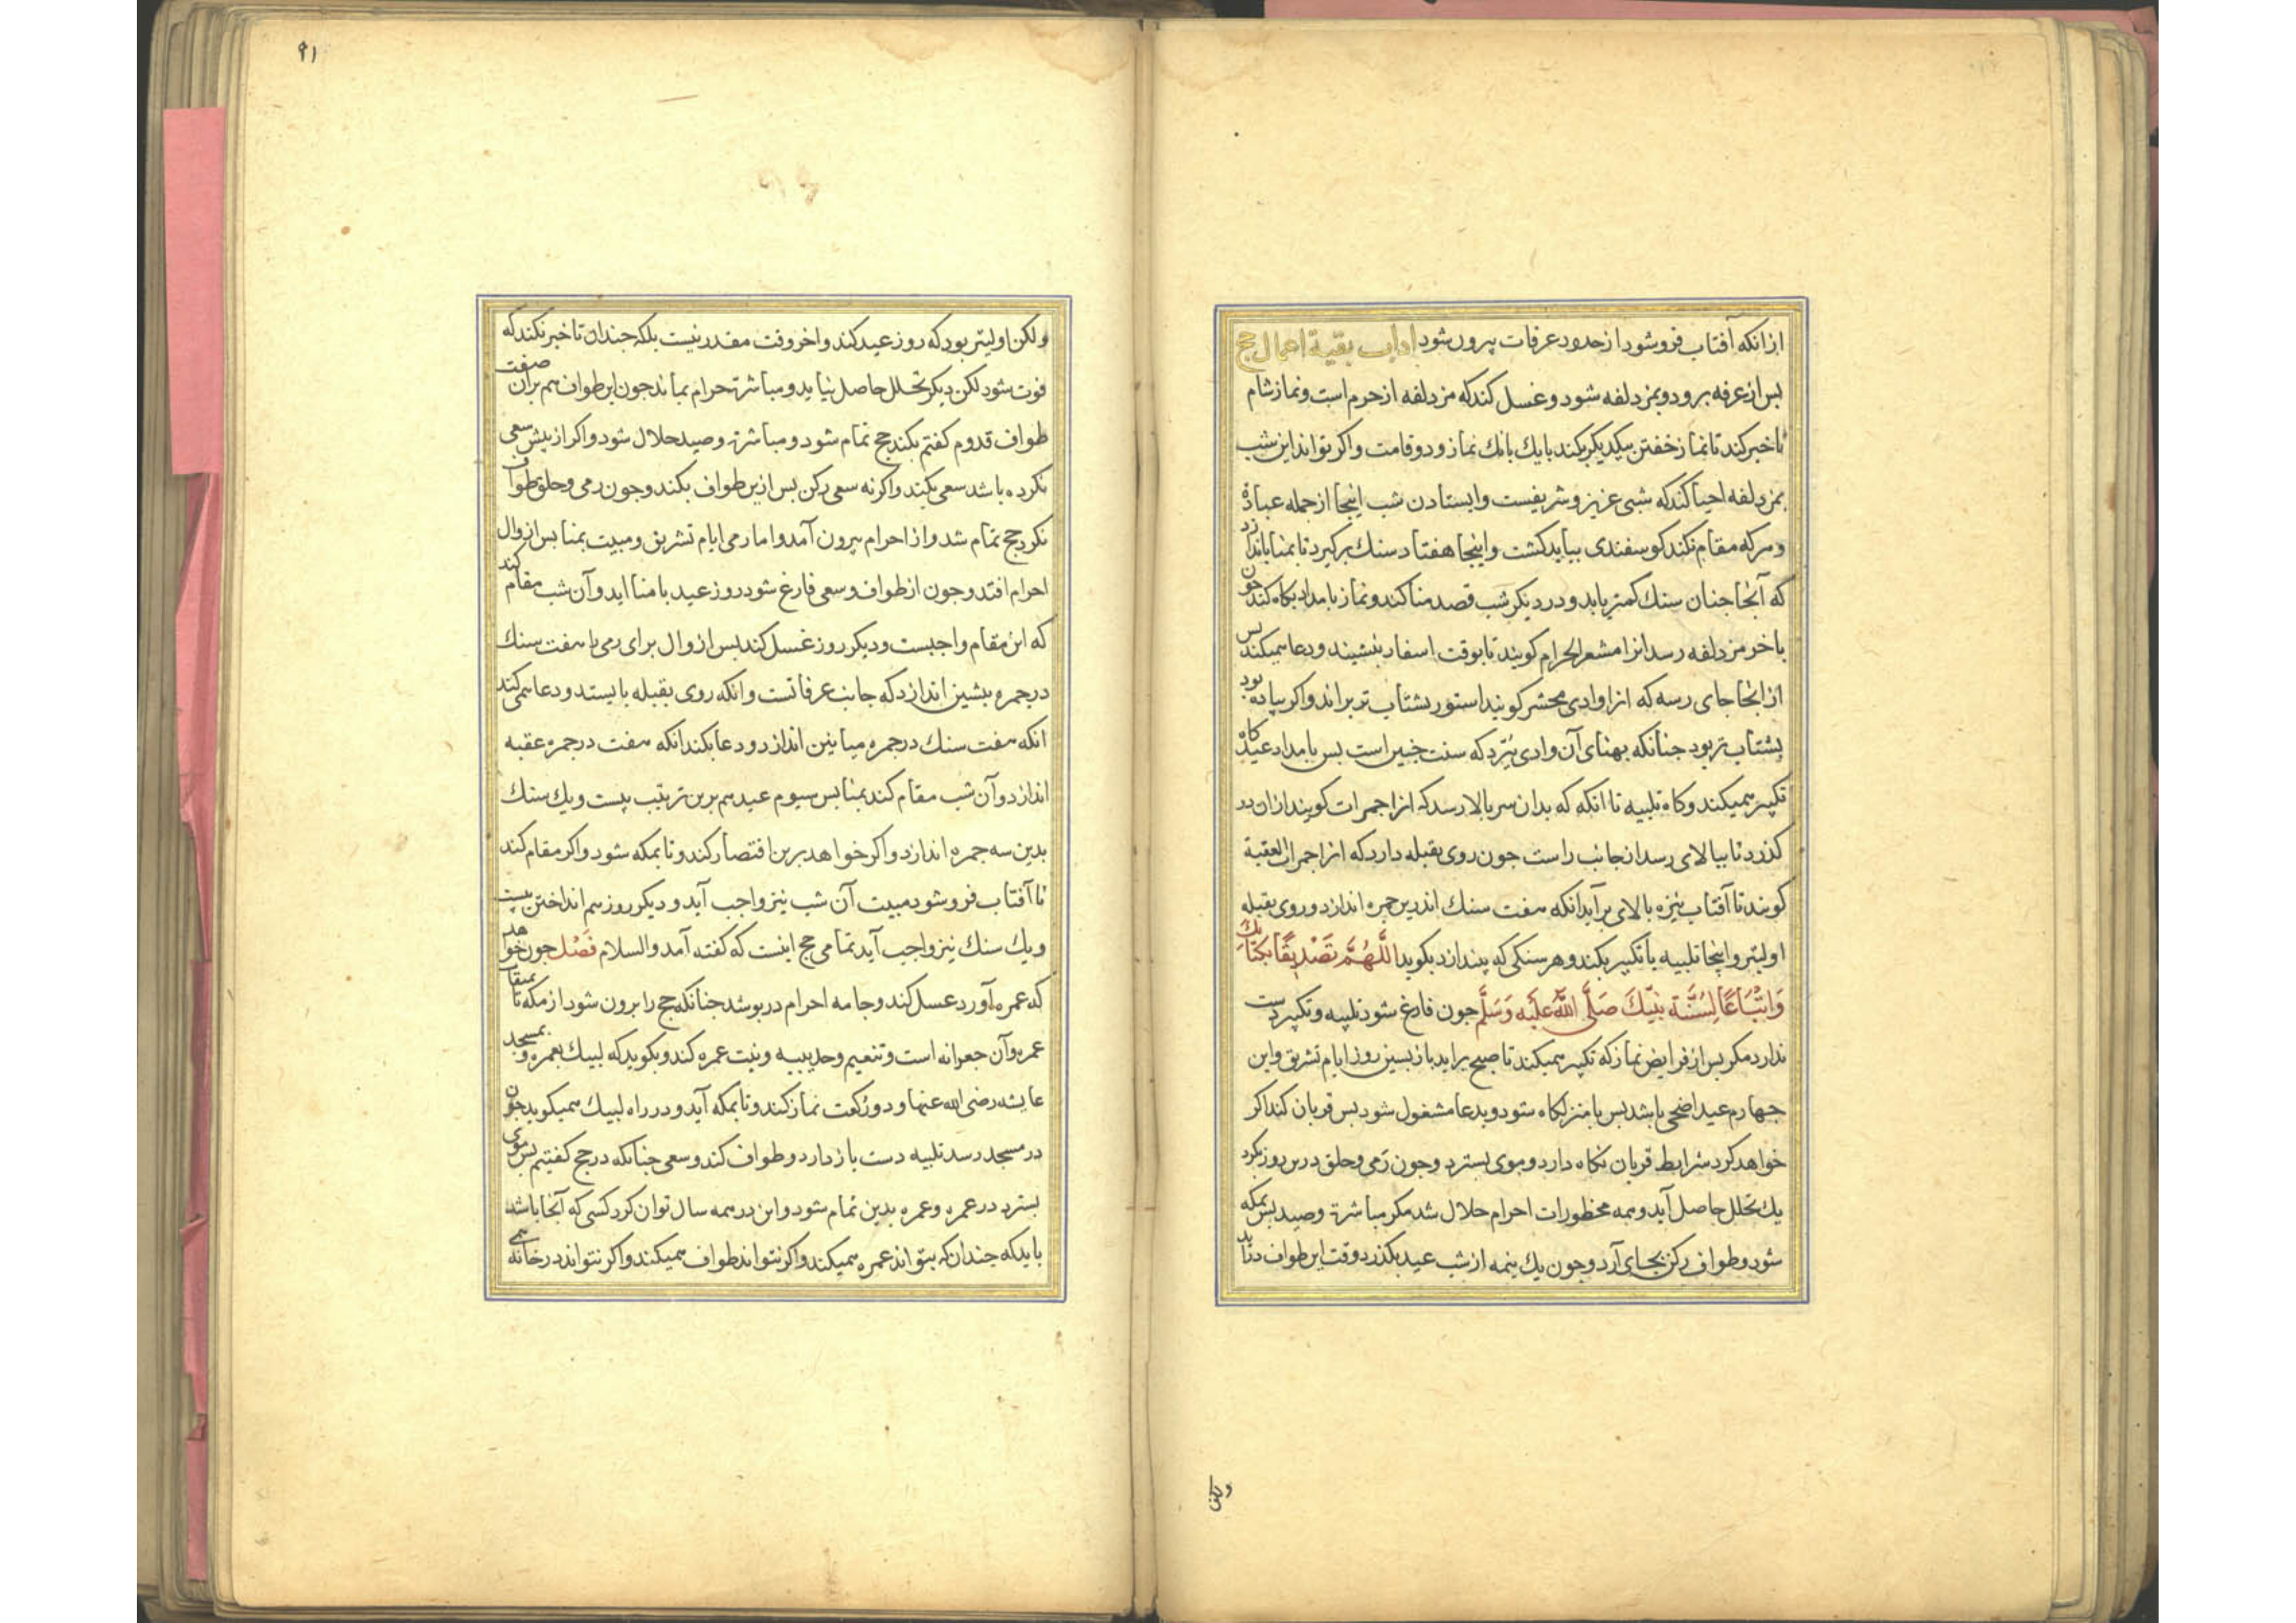 ازانکه آفتاب فروشود از حدود عرفات بیرون شود اداب بقیة اعمال حج
بس از عرفه برود و بمزدلفه شود و غسل کند که مزدلفه از حرم است و نماز شام
تاخیر کند تا نماز خفتن بیکدیکر بکند بایك بانك نماز و دو قامت واکر تواند این شب
بمزدلفه احیا کند که شبی عزیز و شریفست وایستادن شب اینجا از جمله عبادة
و هرکه مقام نکند کوسفندی بباید کشت واینجا هفتاد سنك برکیرد تا بمنا باندازد
که آنجا جنان سنك کمتر یابد و در دیکر شب قصد منا کند و نماز بامداد بکاه کند جون
باخر مزدلفه رسد انرا مشعر الحرام کویند تا بوقت اسفار بنشیند و دعا همیکند بس
از انجا جای رسه که انرا وادی محشر کویند استور بشتاب تر براند واکر بیاده بود
بشتاب تر بود جنانکه بهنای آن وادی ببرد که سنت جنین است بس بامداد عید کاه
تکبیر همیکند و کاه تلبیه تا انکه که بدان سر بالا رسد که انرا جمرات کویند ازان در
کذرد تا ببالای رسد از جانب راست جون روی بقبله دارد که انرا جمرات العقبة
کویند تا آفتاب نیزه بالای برآید انکه هفت سنك اندرین جمره اندازد و روی بقبله
اولیتر و اینجا تلبیه با تکبیر بکند و هر سنکی که بیندازد بکوید اللَّهُمَّ تَصْدِیقًا بِکِتَابِكَ
وَاتِّبَاعًا لِسُنَّةِ نَبِیِّكَ صَلَّی اللهُ عَلَیْهِ وَسَلَّم جون فارغ شود تلبیه و تکبیر دست
ندارد مکر بس از فرایض نماز که تکبیر همیکند تا صبح براید بازبسین روز ایام تشریق واین
جهارم عید اضحی باشد بس بامنزلکاه شود و بدعا مشغول شود بس قربان کند اکر
خواهد کرد شرایط قربان نکاه دارد و موی بسترد وجون رمی و حلق درین روز بکرد
یك تحلل حاصل آید و همه محظورات احرام حلال شد مکر مباشرة وصید بس بمکه
شود و طواف رکن بجای آرد وجون یك نیمه از شب عید بکذرد وقت این طواف دراید
ولکن
۹۱
ولکن اولیتر بود که روز عید کند واخر وقت مقدر نیست بلکه جندان تاخیر نکند که
فوت شود لکن دیکر تحلل حاصل نیاید و مباشرة حرام بماند جون این طواف هم بران صفت
طواف قدوم کفتم بکند حج تمام شود و مباشرة وصید حلال شود واکر از بیش سعی
نکرده باشد سعی بکند واکرنه سعی رکن بس ازین طواف بکند وجون رمی و حلق و طواف
نکرد حج تمام شد واز احرام بیرون آمد واما رمی ایام تشریق و مبیت بمنا بس از زوال
احرام افتد وجون از طواف و سعی فارغ شود روز عید بامنا اید و آن شب مقام کند
که این مقام واجبست و دیکر روز غسل کند بس از زوال برای رمی با هفت سنك
در جمره بیشین اندازد که جانب عرفاتست وانکه روی بقبله بایستد و دعا همی کند
انکه هفت سنك در جمره میانین اندازد و دعا بکند انکه هفت در جمره عقبه
اندازد و آن شب مقام کند بمنا بس سیوم عید هم برین ترتیب بیست و یك سنك
بدین سه جمره اندازد واکر خواهد برین اقتصار کند و تا بمکه شود واکر مقام کند
تا آفتاب فرو شود مبیت آن شب نیز واجب آید و دیکر روز هم انداختن بیست
و یك سنك نیز واجب آید تمامی حج اینست که کفته آمد والسلام فَصْل جون خواهد
که عمره آورد غسل کند و جامه احرام دربوشد جنانکه حج را برون شود از مکه تا میقات
عمره و آن جعرانه است و تنعیم و حدیبیه و نیت عمره کند و بکوید که لبیك بعمره و بمسجد
عایشه رضی الله عنها و دو رکعت نماز کند و تا بمکه آید و در راه لبیك همیکوید جون
در مسجد رسد تلبیه دست بازدارد و طواف کند و سعی جنانکه در حج کفتیم بس موی
بسترد در عمره و عمره بدین تمام شود واین در همه سال توان کرد کسی که آنجا باشد
باید که جندان که بتواند عمره همیکند واکر نتواند طواف همیکند واکر نتواند در خانه همی